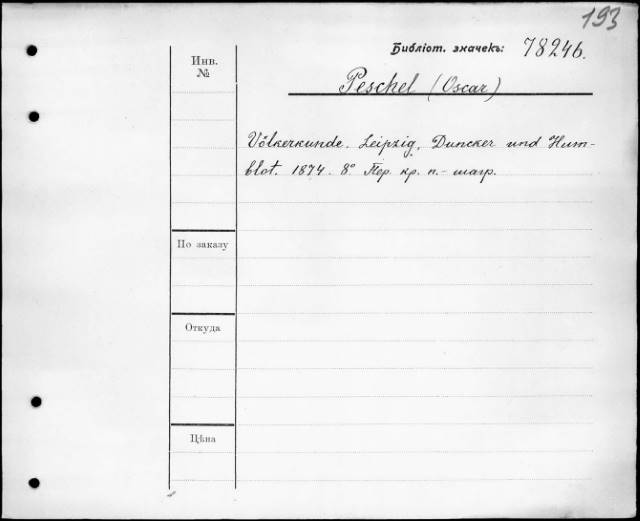 193
Библіот. значекъ: 78246.
Инв.
№
Peschel (Oscar)
Völkerkunde. Leipzig, Duncker und Hum-
blot. 1874. 8° Пер. кр. п.- шагр.
По заказу
Откуда
Цѣна